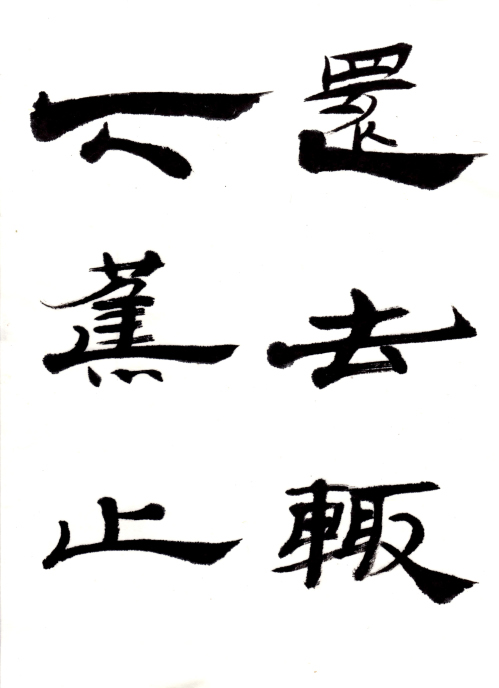 還去輙
下蕉止